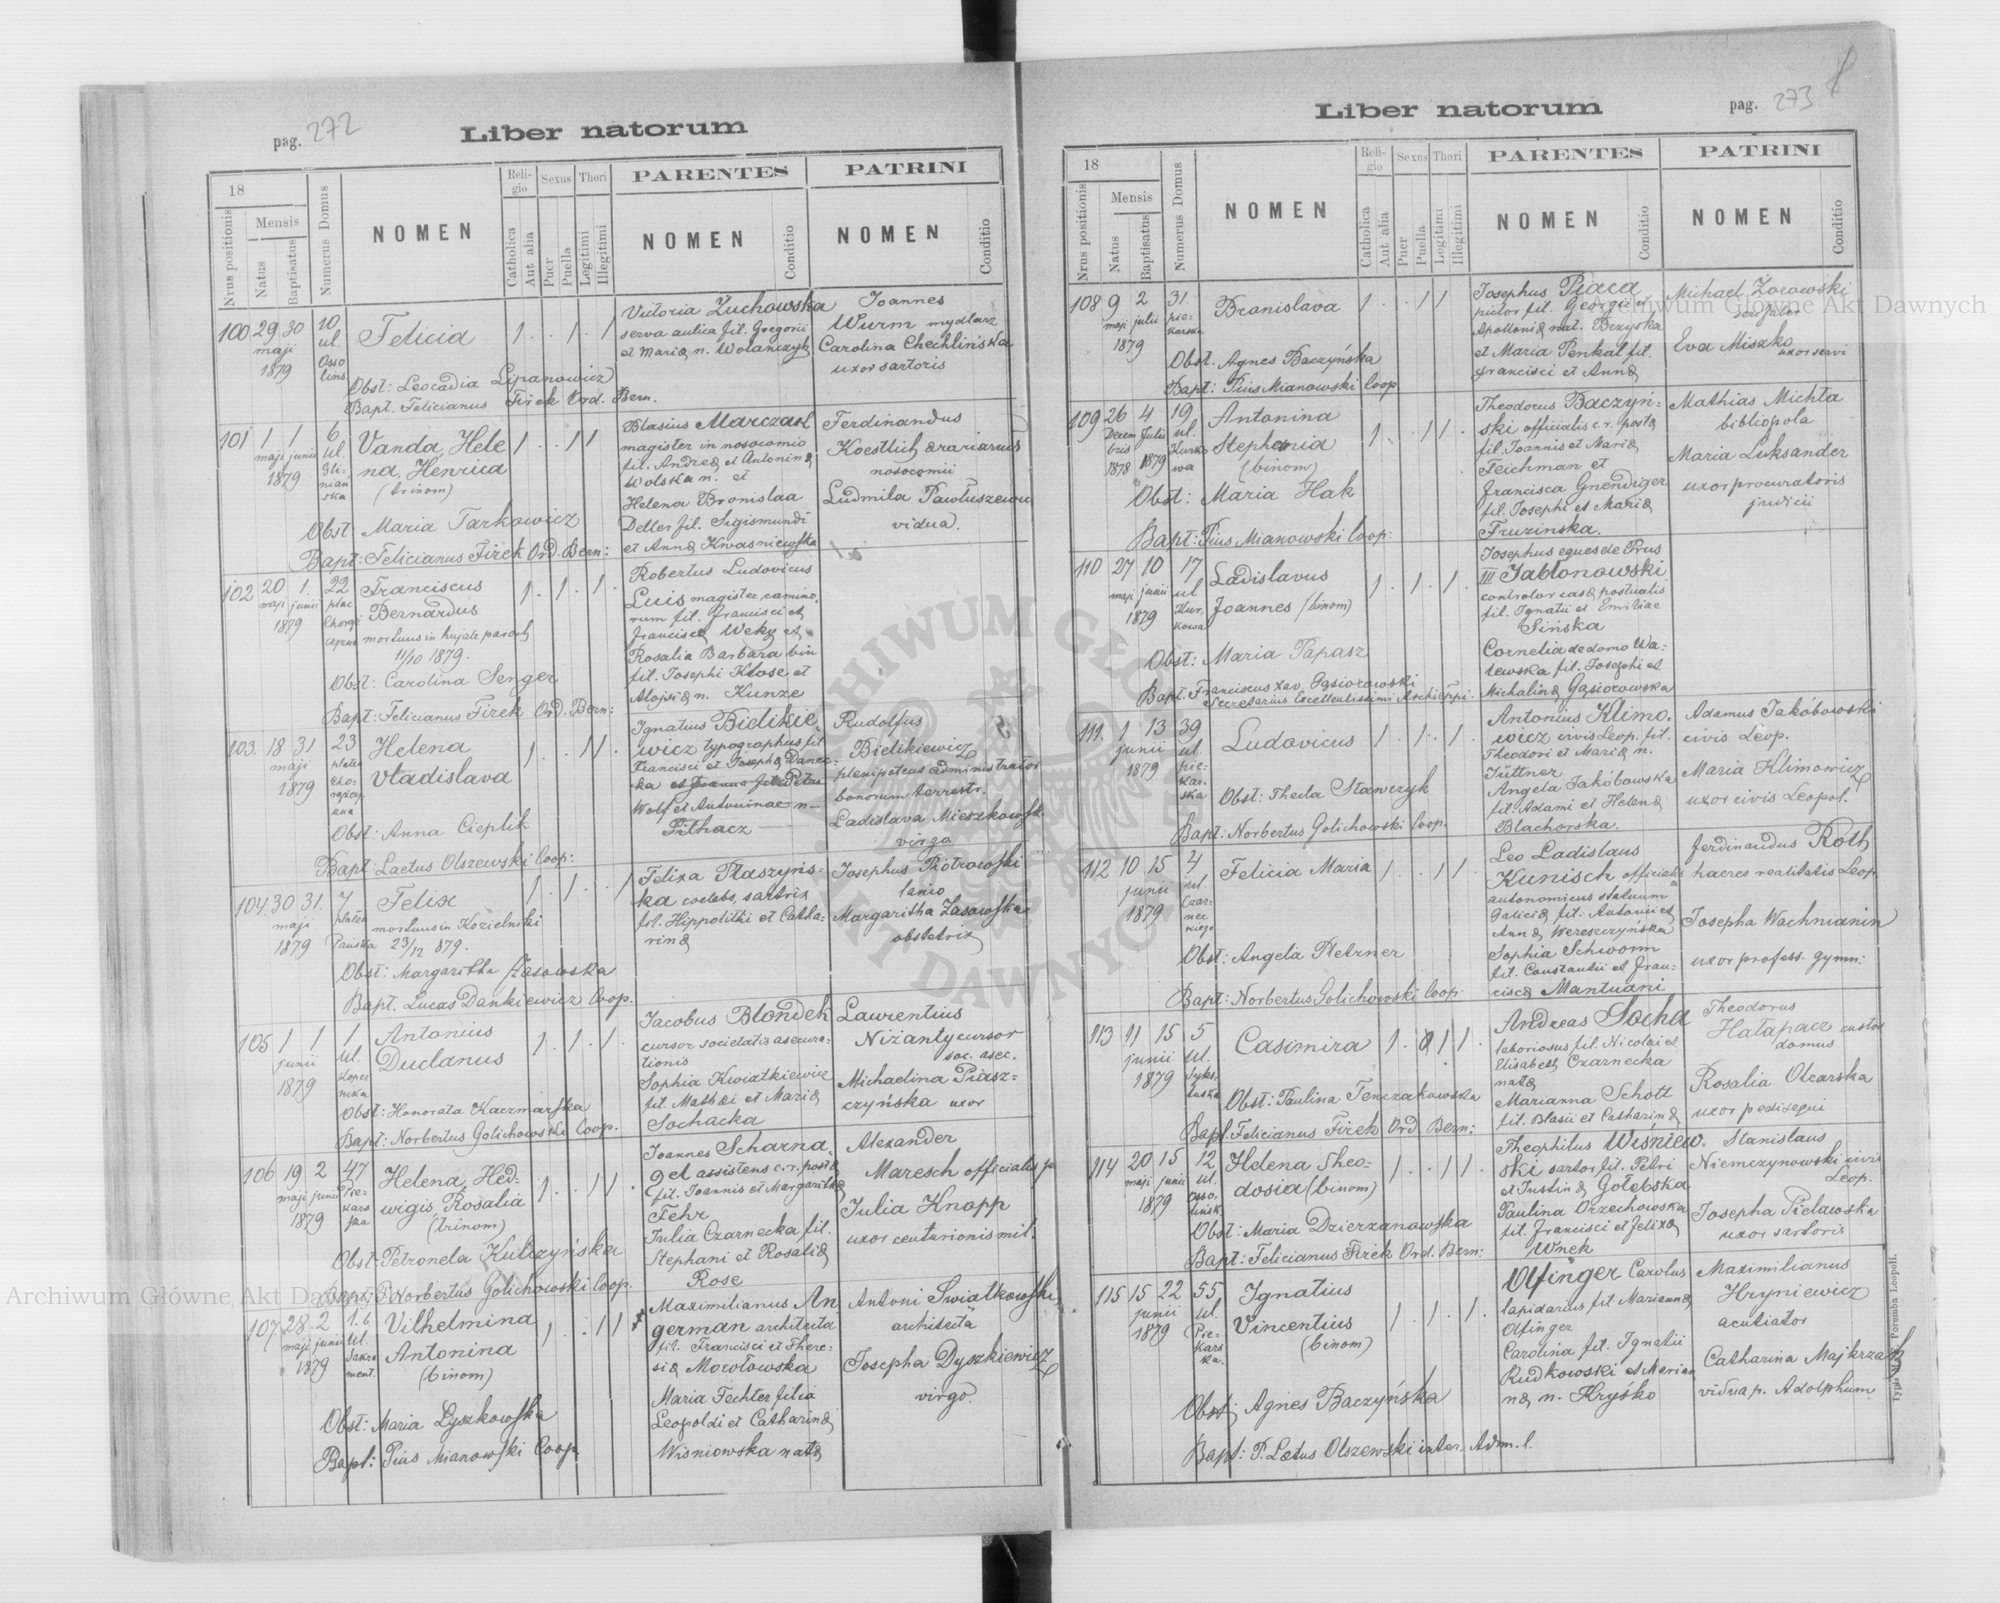 pag. 272
Liber natorum
18
Nrus positionis
Mensis
Natus
Baptisatus
Numerus Domus
NOMEN
Religio
Catholica
Aut alia
Sexus
Puer
Puella
Thori
Legitimi
Illegitimi
PARENTES
NOMEN
Conditio
PATRINI
NOMEN
Conditio
100 29 30 10
maji ul.
1879 Osso
lins.
Felicia
1 . . 1 . 1
Obst: Leocadia Lipanowicz
Bapt. Felicianus Firek Ord. Bern.
Victoria Zuchowska
serva aulica fil. Gregorii
et Mariæ n. Wolanczyk
Joannes
Wurm mydlarz
Carolina Chechlińska
uxor sartoris
101 1 1 6
maji junii ul.
1879 Gli-
nian
ska
Vanda, Hele
na, Henrica
(trinom)
1 . . 1 1
Obst: Maria Tarkowicz
Bapt: Felicianus Firek Ord. Bern:
Blasius Marczak
magister in nosocomio
fil. Andreæ et Antoninæ
Wolska n. et
Helena Bronislaa
Deller fil. Sigismundi
et Annæ Kwasniewska
Ferdinandus
Koestlich ærarianus
nosocomii
Ludmila Pawłuszewicz
vidua.
102 20 1. 22
maji junii plac
1879 Chorąż
czyzna
Franciscus
Bernardus
mortuus in hujate paroch
11/10 1879.
1 . 1 . 1 .
Obst: Carolina Senger
Bapt: Felicianus Firek Ord. Bern:
Robertus Ludovicus
Luis magister camino,
rum fil. Francisci et
Franciscæ Weky et
Rosalia Barbara bin
fil. Josephi Klose et
Alojsiæ n. Kunze
103. 18 31 23
maji platea
1879 Cho-
rążczy
zna
Helena
Vladislava
1 . . 1 1 .
Obst: Anna Cieplik
Bapt: Laetus Olszewski Coop:
Ignatius Bielikie,
wicz typographus fil
Francisci et Josephæ Danec-
ka et Joanna fil. Petri
Wolf et Antoninae n
Pilhacz
Rudolfus
Bielikiewicz
plenipotens administrator
bonorum terrestr.
Ladislava Mieszkowsk
virgo
104. 30 31. 7
maji platea
1879 Pańska
Felix
mortuus in Kozielniki
23/12 879.
1 . 1 . . 1
Obst: Margaritha Zasowska
Bapt. Lucas Dankiewicz Coop.
Felixa Ptaszyńs-
ka coelebs, sartrix
fil. Hippolithi et Catha-
rinæ
Josephus Piotrowski
lanio
Margaritha Zasowska
obstetrix
105 1 1 1
junii ul.
1879 Koper
nika
Antonius
Duclanus
1 . 1 . 1 .
Obst: Honorata Kaczmarska
Bapt: Norbertus Golichowski Coop.
Jacobus Błondek
cursor societatis asecura-
tionis
Sophia Kwiatkiewicz
fil. Mathæi et Mariæ
Sochacka
Lawrentius
Niżanty cursor
soc. asec.
Michaelina Piasz-
czyńska uxor
106 19 2 47
maji junii Pie-
1879 kars
ska
Helena, Hed-
wigis, Rosalia
(trinom)
1 . . 1 1 .
Obst: Petronela Kulczyńska
Bapt: P. Norbertus Golichowski Coop.
Joannes Scharna,
gel assistens c. r. postæ
fil. Joannis et Margarithæ
Fehr
Julia Czarnecka fil.
Stephani et Rosaliæ
Rose
Alexander
Maresch officialis
Julia Knopp
uxor centurionis mil.
107. 28 2 1.6
maji junii ul
1879 Sakra
ment.
Vilhelmina
Antonina
(binom)
1 . . 1 1 .
Obst: Maria Łyszkowska
Bapt: Pius Mianowski Coop.
Maximilianus An
german architecta
fil. Francisci et There-
siæ Morołowska
Maria Fechter filia
Leopoldi et Catharinæ
Wisniowska natæ
Antoni Swiatkowski
architecta
Josepha Dyszkiewicz
virgo.
pag. 273
Liber natorum
18
Nrus positionis
Mensis
Natus
Baptisatus
Numerus Domus
NOMEN
Religio
Catholica
Aut alia
Sexus
Puer
Puella
Thori
Legitimi
Illegitimi
PARENTES
NOMEN
Conditio
PATRINI
NOMEN
Conditio
108 9 2 31.
maji julii pie-
1879 karska
Bronislava
1 . . 1 1
Obst. Agnes Baczyńska
Bapt: Pius Mianowski Coop
Josephus Piaca
pictor fil. Georgii et
Apolloniæ nat. Bezyska
et Maria Penkal fil.
Francisci et Annæ
Michael Żorowski
seu faber
Eva Miszko
uxor servi
109 26 4 19
Decem Julii ul.
bris 1879 Kurko
1878 wa
Antonina
Stephania
(binom)
1 . . 1 1 .
Obst: Maria Hak
Bapt: Pius Mianowski Coop:
Theodorus Baczyn-
ski officialis c. r. postæ
fil. Joannis et Mariæ
Teichman et
Francisca Gnendiger
fil. Josephi et Mariæ
Fruzinska.
Mathias Michta
bibliopola
Maria Luksander
uxor procuratoris
judicii
110 27 10 17
maji junii ul
1879 Kur.
kowa
Ladislavus
Joannes (binom)
1 . 1 . 1 .
Obst: Maria Papasz
Bapt. Franciscus Xav. Gąsiorowski
Secretarius Excellentissimi Archieppi
Josephus eques de Prus
III Jabłonowski
controlor casæ postualis
fil. Ignatii et Emiliae
Sińska
Cornelia de domo Wa-
lewska fil. Josephi et
Michalinæ Gąsiorowska
111. 1 13 39
junii ul.
1879 pie-
kar.
ska
Ludovicus
1 . 1 . 1 .
Obst: Thecla Stawczyk
Bapt: Norbertus Golichowski Coop.
Antonius Klimo,
wicz civis Leop. fil.
Theodori et Mariæ n.
Jüttner
Angela Jakóbowska
fil. Adami et Helenæ
Blachorska.
Adamus Jakóbowski
civis Leop.
Maria Klimowicz
uxor civis Leopol.
112 10 15 4
junii ul.
1879 Czar-
nec
kiego
Felicia Maria
1 . . 1 1
Obst: Angela Pletzner
Bapt: Norbertus Golichowski Coop.
Leo Ladislaus
Kunisch officialis
autonomicus statuum
Galiciæ fil. Antonii et
Annæ Wereszczyńska
Sophia Schworm
fil. Constantii et Fran-
ciscæ Mantuani
Ferdinandus Roth
haeres realitatis Leop.
Josepha Wachnianin
uxor profess. gymn:
113 11 15 5
junii ul.
1879 Syks-
tuska
Casimira
1 . . 1 1 .
Obst: Paulina Tenczakowska
Bapt. Felicianus Firek Ord Bern:
Andreas Socha
laboriosus fil. Nicolai et
Elisabeth Czarnecka
natæ
Marianna Schott
fil. Blasii et Catharinæ
Theodorus
Hałapacz custos
domus
Rosalia Olcarska
uxor pedisequi
114 20 15 12
maji junii ul.
1879 Osso.
lińsk.
Helena Theo-
dosia (binom)
1 . . 1 1 .
Obst: Maria Dzierzanowska
Bapt: Felicianus Firek Ord. Bern:
Theophilus Wiśniew.
ski sartor fil. Petri
et Justinæ Gołebska
Paulina Orzechowska
fil. Francisci et Felixæ
Wnek
Stanislaus
Niemczynowski civis
Leop.
Josepha Pielawska
uxor sartoris
115 15 22 55
junii ul.
1879 Pie-
kars
ka.
Ignatius
Vincentius
(binom)
1 . 1 . 1 .
Obst: Agnes Baczyńska
Bapt: P. Lætus Olszewski inter. Adm. l.
Olfinger Carolus
lapidarius fil Mariannæ
Olfinger
Carolina fil. Ignatii
Rudkowski et Marian
næ n. Hryśko
Maximilianus
Hryniewicz
acutiator
Catharina Majkrzak
vidua p. Adolphum
Archiwum Główne Akt Dawnych
Archiwum Główne Akt Dawnych
ARCHIWUM GŁÓWNE AKT DAWNYCH